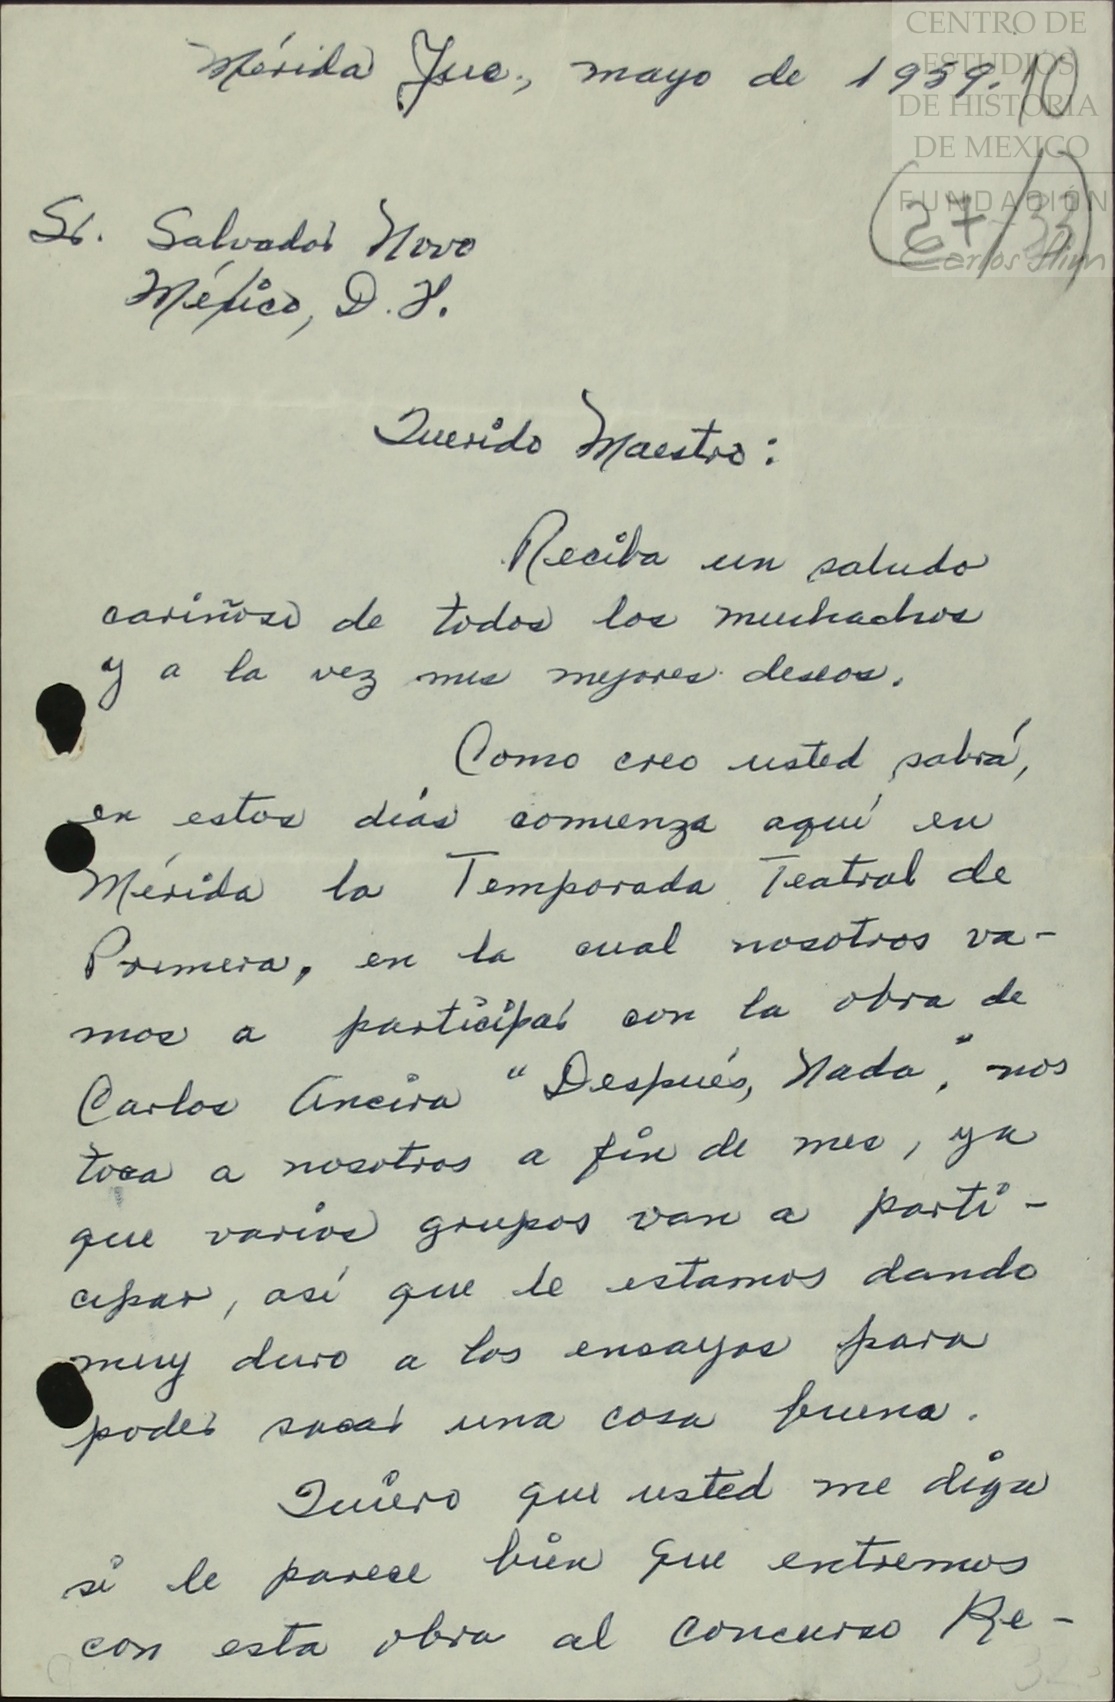 CENTRO DE
ESTUDIOS
DE HISTORIA
DE MEXICO
FUNDACIÓN
Carlos Slim
Mérida Yuc., mayo de 1959.
10
Sr. Salvador Novo
México, D. F.
Querido Maestro:
Reciba un saludo
cariñoso de todos los muchachos
y a la vez mis mejores deseos.
Como creo usted sabrá,
en estos días comienza aquí en
Mérida la Temporada Teatral de
Primera, en la cual nosotros va-
mos a participar con la obra de
Carlos Ancira "Después, Nada", nos
toca a nosotros a fin de mes, ya
que varios grupos van a parti-
cipar, así que le estamos dando
muy duro a los ensayos para
poder sacar una cosa buena.
Quiero que usted me diga
si le parece bien que entremos
con esta obra al concurso Re-